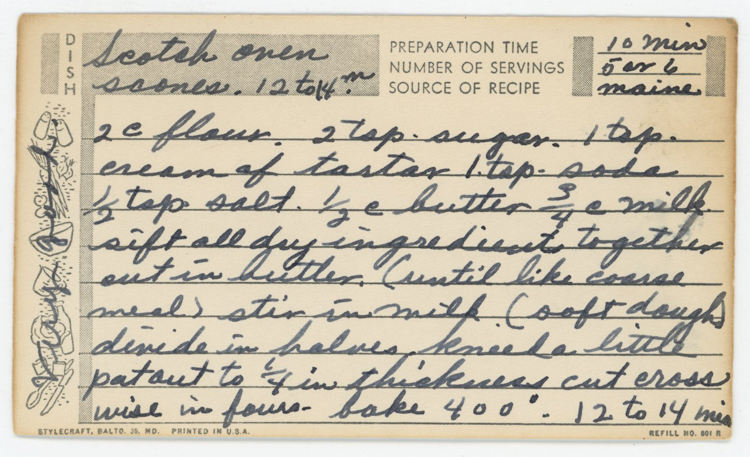 DISH
Scotch oven
scones. 12 to 14 m.
PREPARATION TIME 10 min
NUMBER OF SERVINGS 5 or 6
SOURCE OF RECIPE maine
2 c flour. 2 tsp. sugar. 1 tsp.
cream of tartar 1 tsp. soda
1/2 tsp salt. 1/2 c butter 3/4 c milk
sift all dry ingredient together
cut in butter. (until like coarse
meal) stir in milk (soft dough)
divide in halves, knead a little
pat out to 1/4 in thickness cut cross
wise in fours - bake 400°. 12 to 14 min
STYLECRAFT, BALTO. 25, MD. PRINTED IN U.S.A.
REFILL NO. 801 R